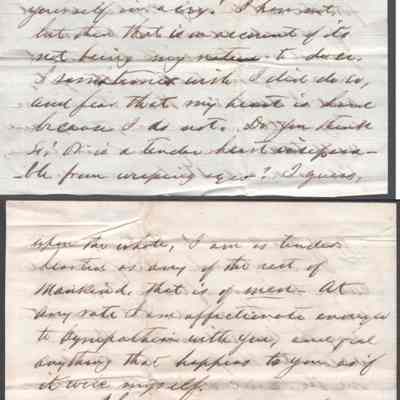 yourself in a cry? I have not,
but then that is on account of its
not being my nature to do so.
I sometimes wish I did do so,
and fear that my heart is hard
because I do not. Do you think
so? Or is a tender heart insepara-
ble from weeping eyes? I guess,
upon the whole, I am as tender
hearted as any of the rest of
Mankind, that is of men - At
any rate I am affectionate enough
to sympathise with you, and feel
anything that happens to you as if
it were myself.